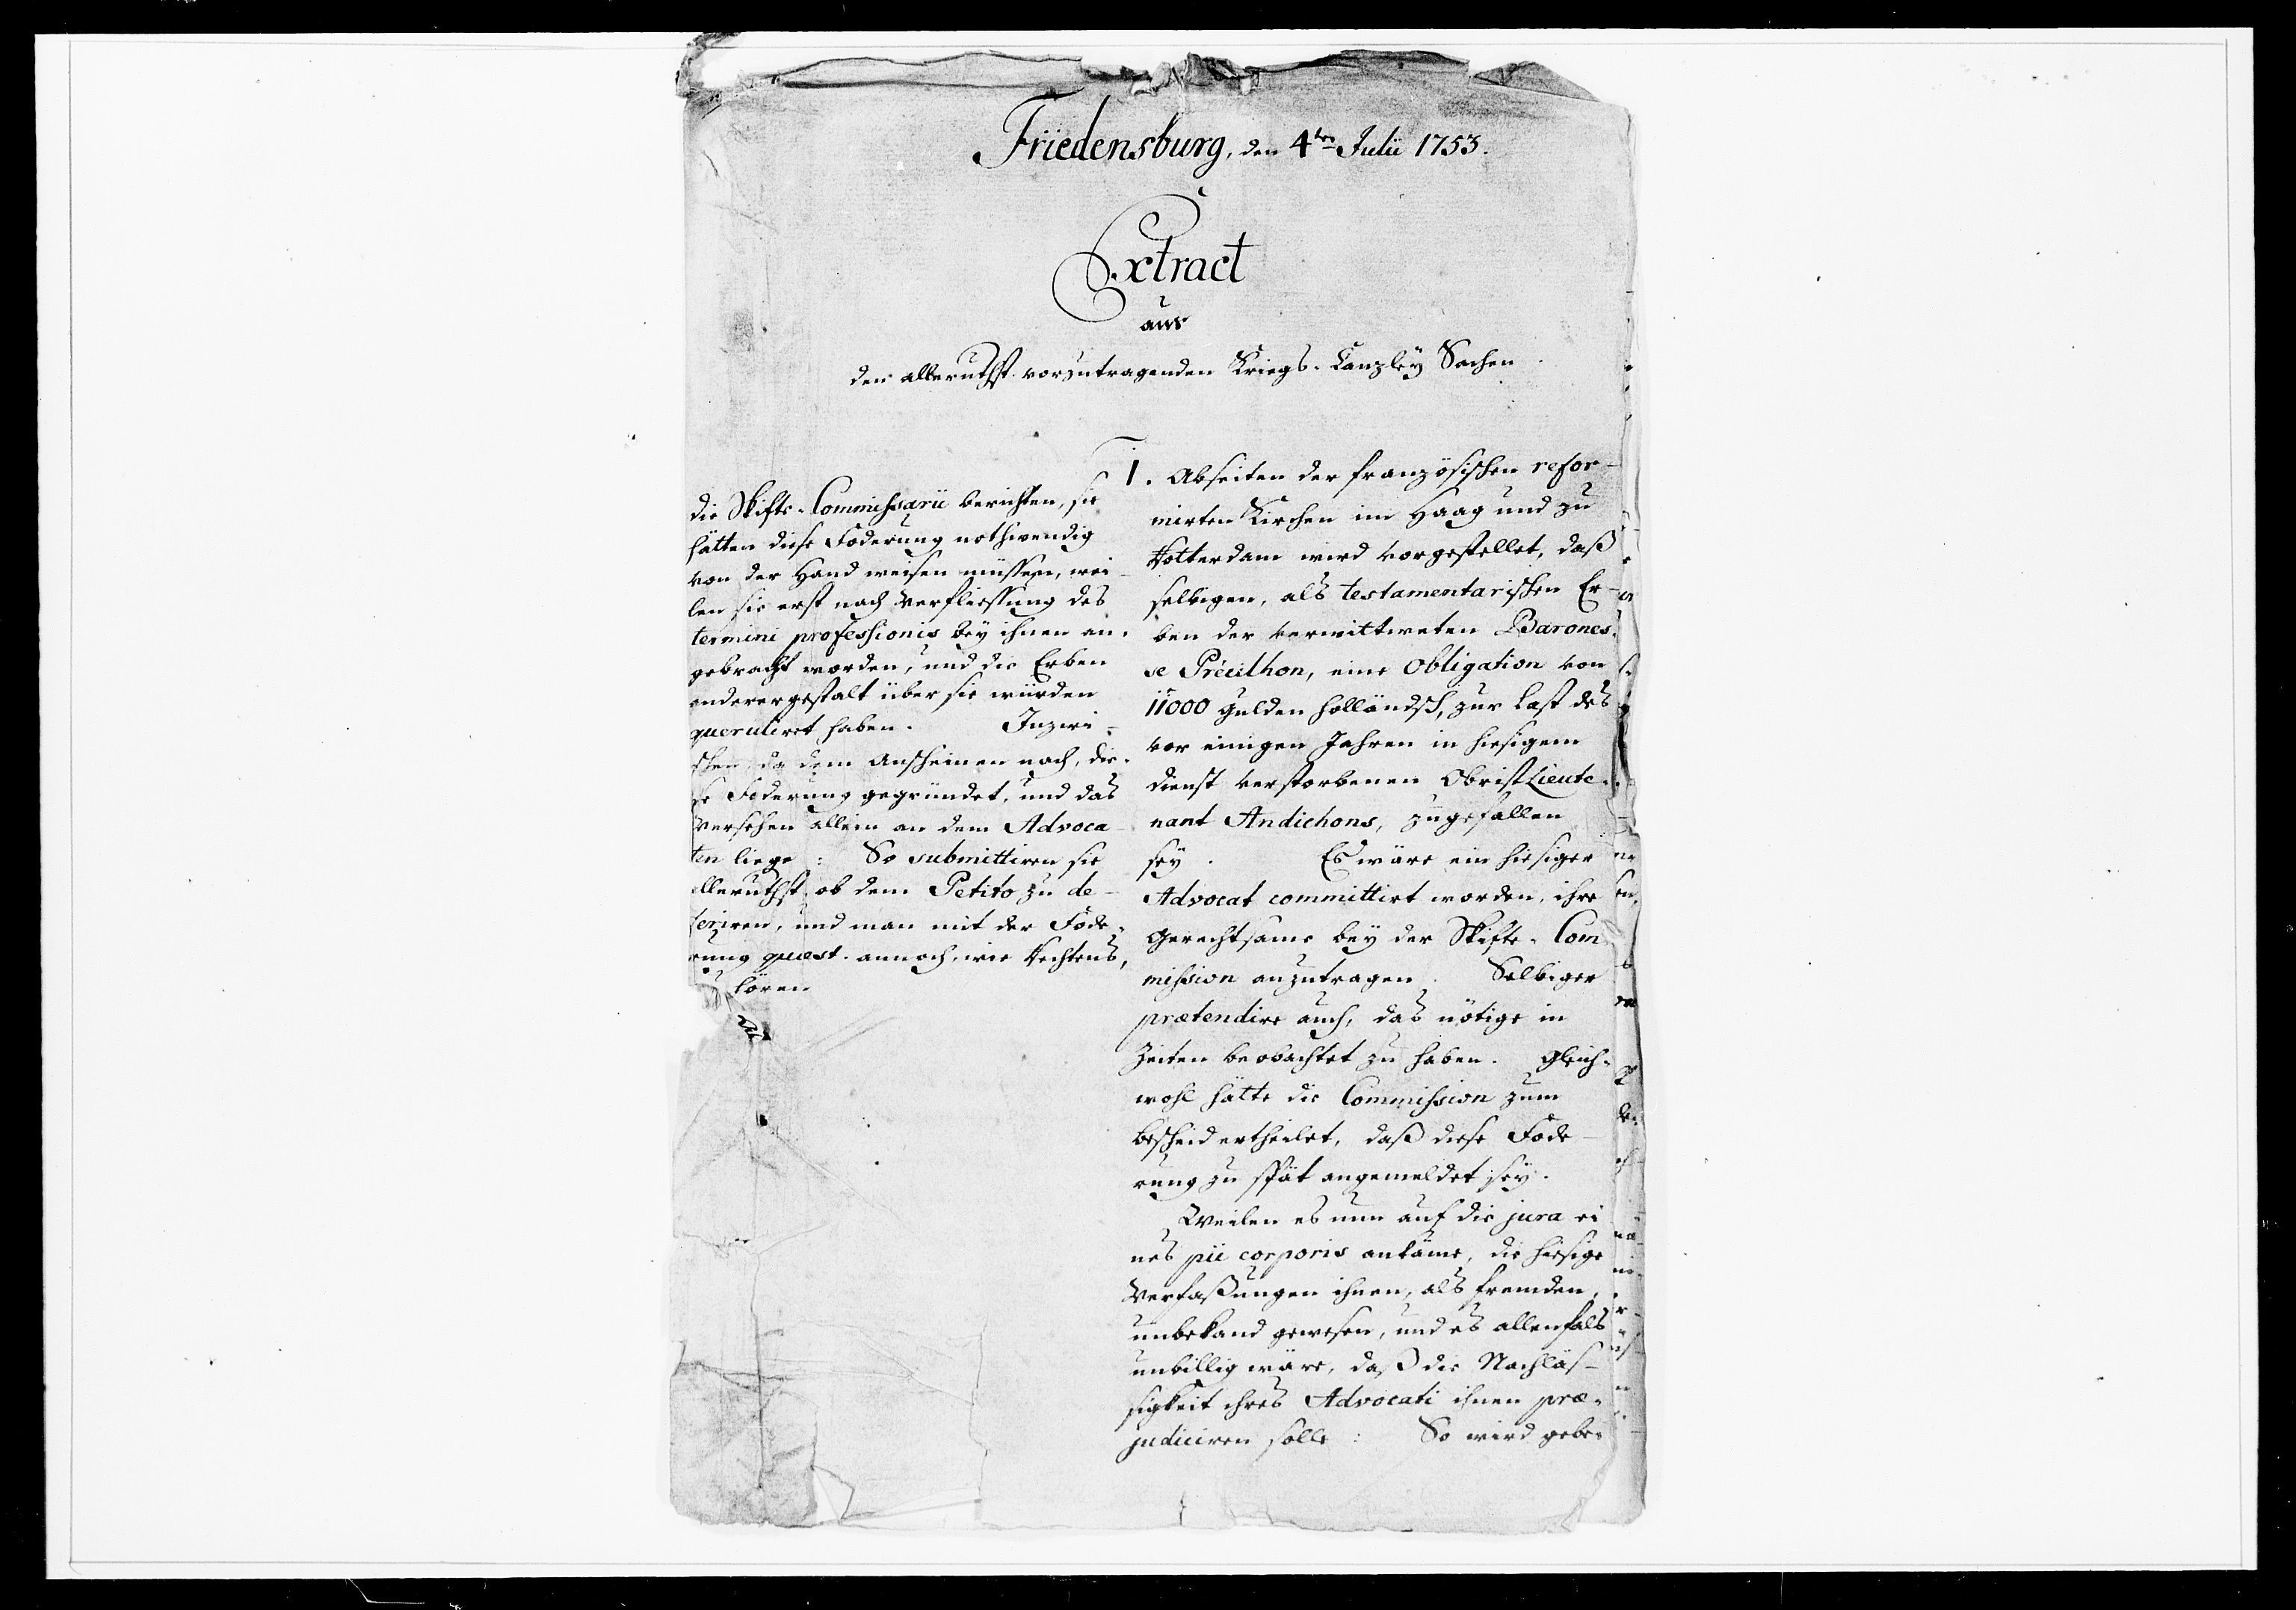 Friedensburg, den 4ten Julii 1753.
Extract
aus
den alleruthst. vorzutragenden Kriegs-Canzley Sachen.
1. Abseiten der französischen refor-
mirten Kirchen im Haag und zu
Rotterdam wird vorgestellet, daß
selbigen, als testamentarischen Er-
ben der verwittweten Barones-
se Précilhon, eine Obligation von
11000 Gulden holländsch, zur Last des
vor einigen Jahren in hiesigem
Dienst verstorbenen ObristLieute-
nant Andichons, zugefallen
sey. Es wäre ein hiesiger
Advocat committirt worden, ihre
Gerechtsame bey der Skifte-Com
mission anzutragen. Selbiger
prætendire auch, das nötige in
Zeiten beobachtet zu haben. Gleich-
wohl hätte die Commission zum
Bescheid ertheilet, daß diese Fode-
rung zu spät angemeldet sey.
Weilen es nun auf die jura ei
nes pii corporis ankäme, die hiesige
Verfaßungen ihnen, als fremden,
unbekand gewesen, und es allenfals
unbillig wäre, daß die Nachläs-
sigkeit ihres Advocati ihnen præ-
judiciren solle: So wird gebe-
die Skifte-Commissarii berichten, sie
hätten diese Foderung nothwendig
von der Hand weisen müssen, wei-
len sie erst nach Verfliessung des
termini professionis bey ihnen an-
gebracht worden, und die Erben
anderergestalt über sie würden
queruliret haben. Inzwi-
schen, da dem Anscheinen nach, die-
se Foderung gegründet, und das
Versehen allein an dem Advoca-
ten liege: So submittiren sie
alleruthst. ob dem Petito zu de-
feriren, und man mit der Fode-
rung quæst. annoch, wie Rechtens,
zu hören